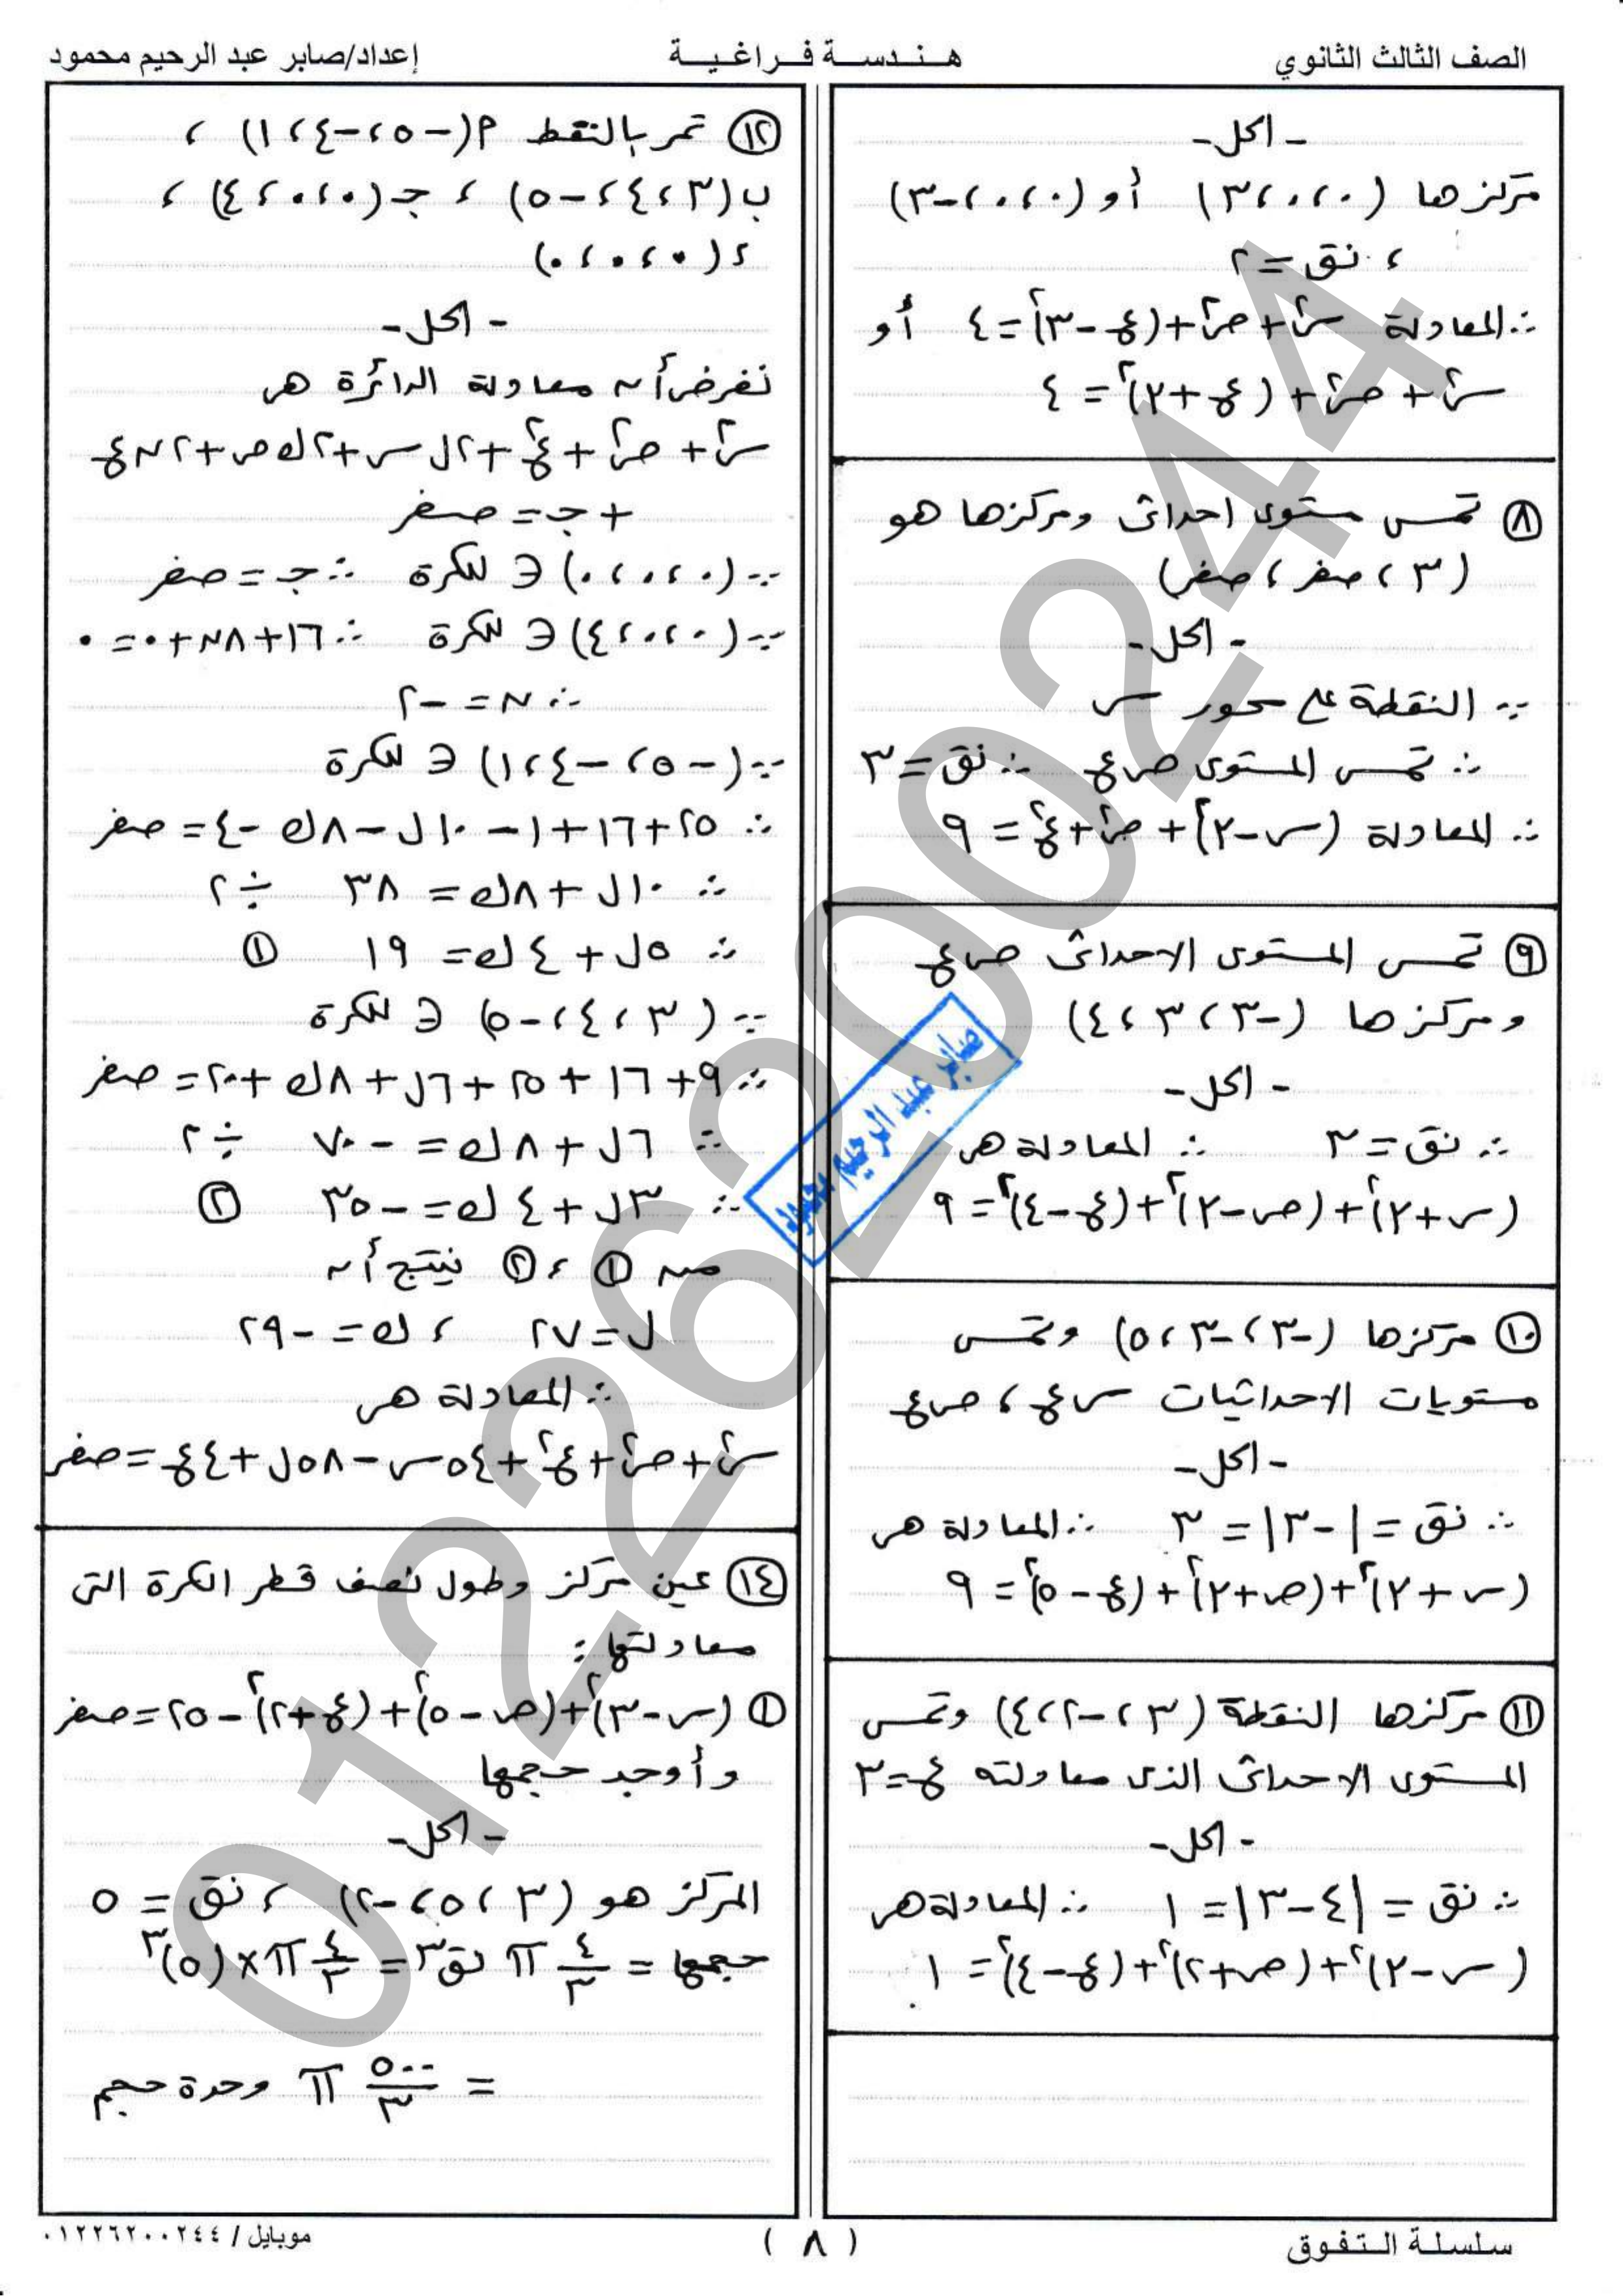 الصف الثالث الثانوي
هندسة فراغية
إعداد/صابر عبد الرحيم محمود
- الحل -
مركزها (٠، ٠، ٣) أو (٠، ٠، -٣)
، نق = ٢
∴ المعادلة س٢ + ص٢ + (ع - ٣)٢ = ٤ أو
س٢ + ص٢ + (ع + ٣)٢ = ٤
٨ تمس مستوى احداثى ومركزها هو
(٣ ، صفر ، صفر)
- الحل -
∵ النقطة على محور س
∴ تمس المستوى ص ع ∴ نق = ٣
∴ المعادلة (س - ٣)٢ + ص٢ + ع٢ = ٩
٩ تمس المستوى الاحداثى ص ع
ومركزها (-٣، ٣، ٤)
- الحل -
∴ نق = ٣ ∴ المعادلة هى
(س + ٣)٢ + (ص - ٣)٢ + (ع - ٤)٢ = ٩
١٠ مركزها (-٣، -٣، ٥) وتمس
مستويات الاحداثيات س ع ، ص ع
- الحل -
∴ نق = |-٣| = ٣ ∴ المعادلة هى
(س + ٣)٢ + (ص + ٣)٢ + (ع - ٥)٢ = ٩
١١ مركزها النقطة (٣، -٢، ٤) وتمس
المستوى الاحداثى الذى معادلته ع = ٣
- الحل -
∴ نق = |٤ - ٣| = ١ ∴ المعادلة هى
(س - ٣)٢ + (ص + ٢)٢ + (ع - ٤)٢ = ١
١٢ تمر بالنقط م(-٥، -٤، ١) ،
ب(٣، ٤، -٥) ، جـ(٠، ٠، ٤) ،
ء(٠، ٠، ٠)
- الحل -
نفرض أن معادلة الدائرة هى
س٢ + ص٢ + ع٢ + ٢ل س + ٢ك ص + ٢ن ع
+ جـ = صفر
∵ (٠، ٠، ٠) ∈ للكرة ∴ جـ = صفر
∵ (٠، ٠، ٤) ∈ للكرة ∴ ١٦ + ٨ن + ٠ = ٠
∴ ن = -٢
∵ (-٥، -٤، ١) ∈ للكرة
∴ ٢٥ + ١٦ + ١ - ١٠ل - ٨ك - ٤ = صفر
∴ ١٠ل + ٨ك = ٣٨ ÷ ٢
∴ ٥ل + ٤ك = ١٩ ①
∵ (٣، ٤، -٥) ∈ للكرة
∴ ٩ + ١٦ + ٢٥ + ٦ل + ٨ك + ٢٠ = صفر
∴ ٦ل + ٨ك = -٧٠ ÷ ٢
∴ ٣ل + ٤ك = -٣٥ ②
من ① ، ② ينتج أن
ل = ٢٧ ، ك = -٢٩
∴ المعادلة هى
س٢ + ص٢ + ع٢ + ٥٤س - ٥٨ل + ٤ع = صفر
١٤ عين مركز وطول نصف قطر الكرة التى
معادلتها :
① (س - ٣)٢ + (ص - ٥)٢ + (ع + ٢)٢ - ٢٥ = صفر
وأوجد حجمها
- الحل -
المركز هو (٣، ٥، -٢) ، نق = ٥
حجمها = ٤/٣ π نق٣ = ٤/٣ π × (٥)٣
= ٥٠٠/٣ π وحدة حجم
صابر عبد الرحيم محمود
01226200244
سلسلة التفوق
( ٨ )
موبايل / ٠١٢٢٦٢٠٠٢٤٤